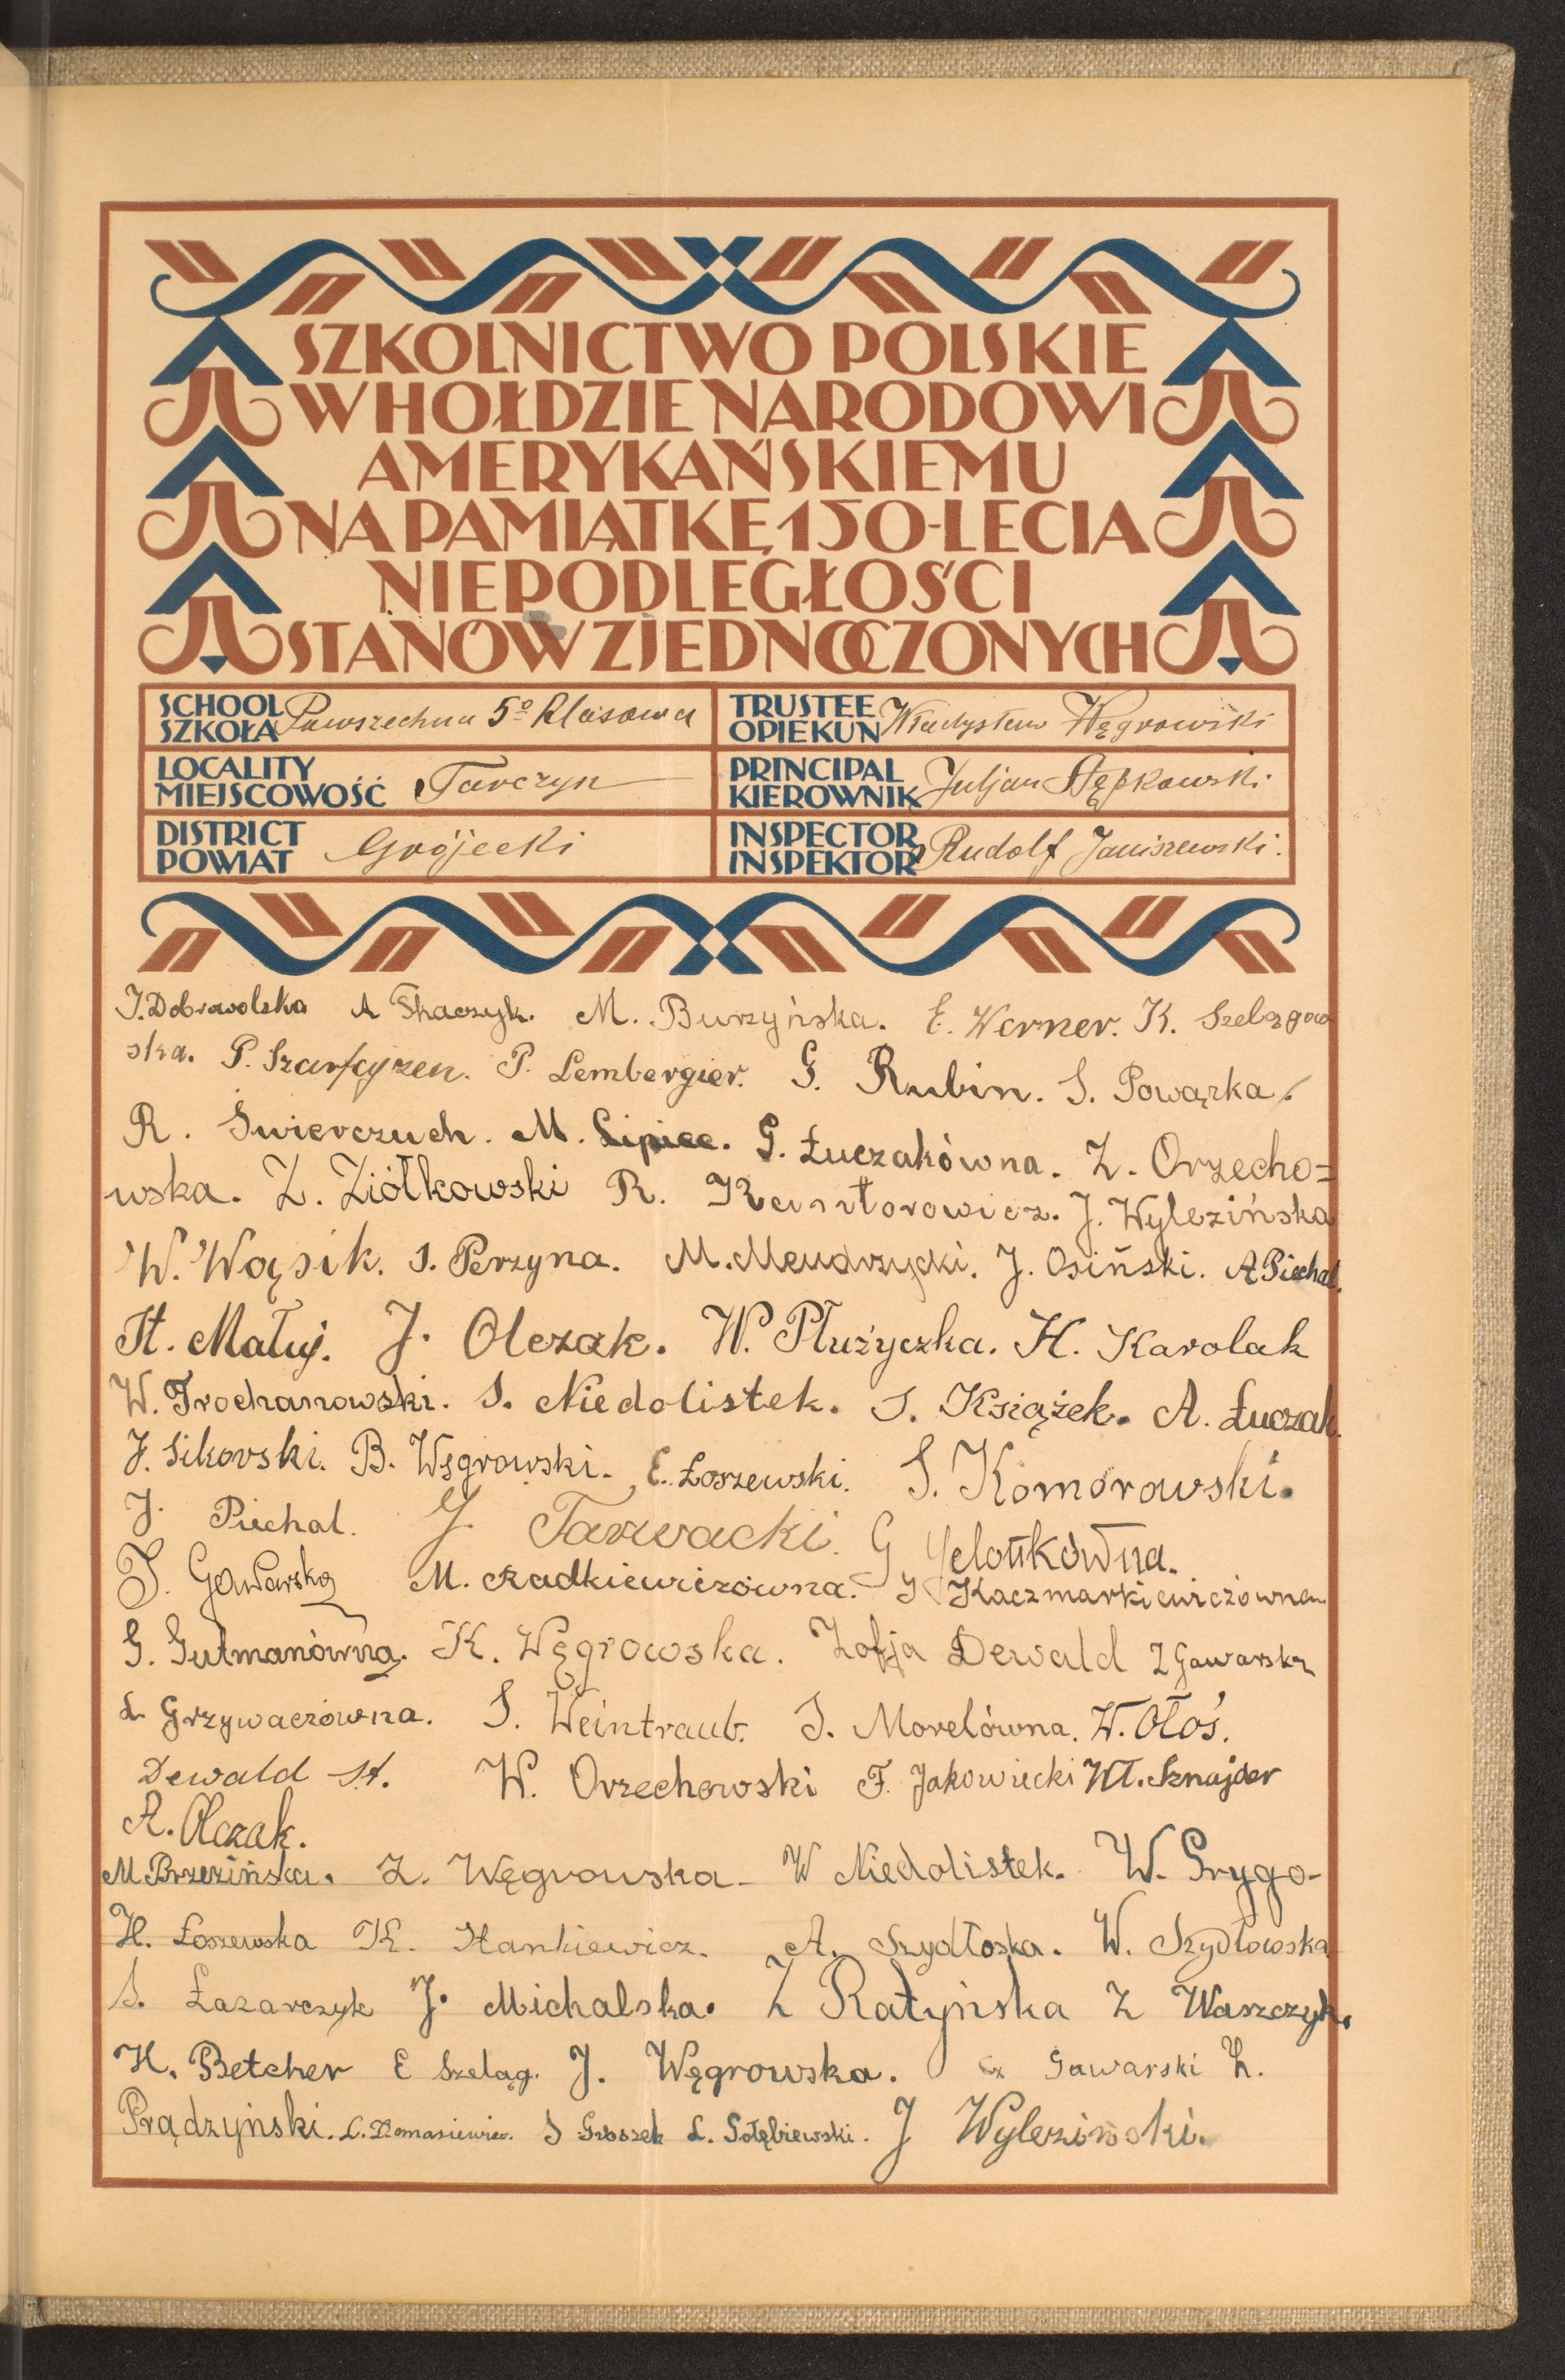 SZKOLNICTWO POLSKIE
W HOŁDZIE NARODOWI
AMERYKAŃSKIEMU
NA PAMIĄTKĘ 150-LECIA
NIEPODLEGŁOŚCI
STANÓW ZJEDNOCZONYCH
SCHOOL SZKOŁA Powszechna 5º klasowa
TRUSTEE OPIEKUN Władysław Węgrowski
LOCALITY MIEJSCOWOŚĆ Tarczyn
PRINCIPAL KIEROWNIK Juljan Stępkowski
DISTRICT POWIAT Grójecki
INSPECTOR INSPEKTOR Rudolf Janiszewski.
J. Dobrowolska A Tkaczyk. M. Burzyńska. E. Werner. K. Szelągow
ska. P. Szarfcyzen. P. Lembergier. G. Rubin. S. Powązka.
R. Świerczuch. M. Lipiec. G. Łuczakówna. Z. Orzecho=
wska. Z. Ziółkowski R. Kantorowicz. J. Wylezińska
W. Wąsik. S. Perzyna. M. Mendrzycki. J. Osiński. A Piechal.
St. Małuj. J. Olczak. W. Płużyczka. H. Karolak
W. Trochanowski. S. Niedolistek. S. Książek. A. Łuczak.
J. Sikorski. B. Węgrowski. E. Łoszewski. S. Komorowski.
J. Piechal. J. Tarwacki. G Jelonkówna.
J. Gawarska M. Radkiewiczówna. J Kaczmarkiewiczówna
G. Gutmanówna. K. Węgrowska. Zofja Dewald Z Gawarska
L Grzywaczówna. S. Weintraub. S. Morelówna. W. Ołoś.
Dewald St. W. Orzechowski F. Jakowiecki Wł. Sznajder
A. Olczak.
M Brzezińska. Z. Węgrowska- W Niedolistek. W. Prygo-
H. Łoszewska K. Stankiewicz. A. Szydłoska. W. Szydłowska
S. Łazarczyk J. Michalska. Z Ratyńska Z Waszczyk.
H. Betcher E Szeląg. J. Węgrowska. Cz Gawarski Z.
Prądzyński. L. Tomasiewicz. S Groszek L. Gołębiewski. J Wyleziński.